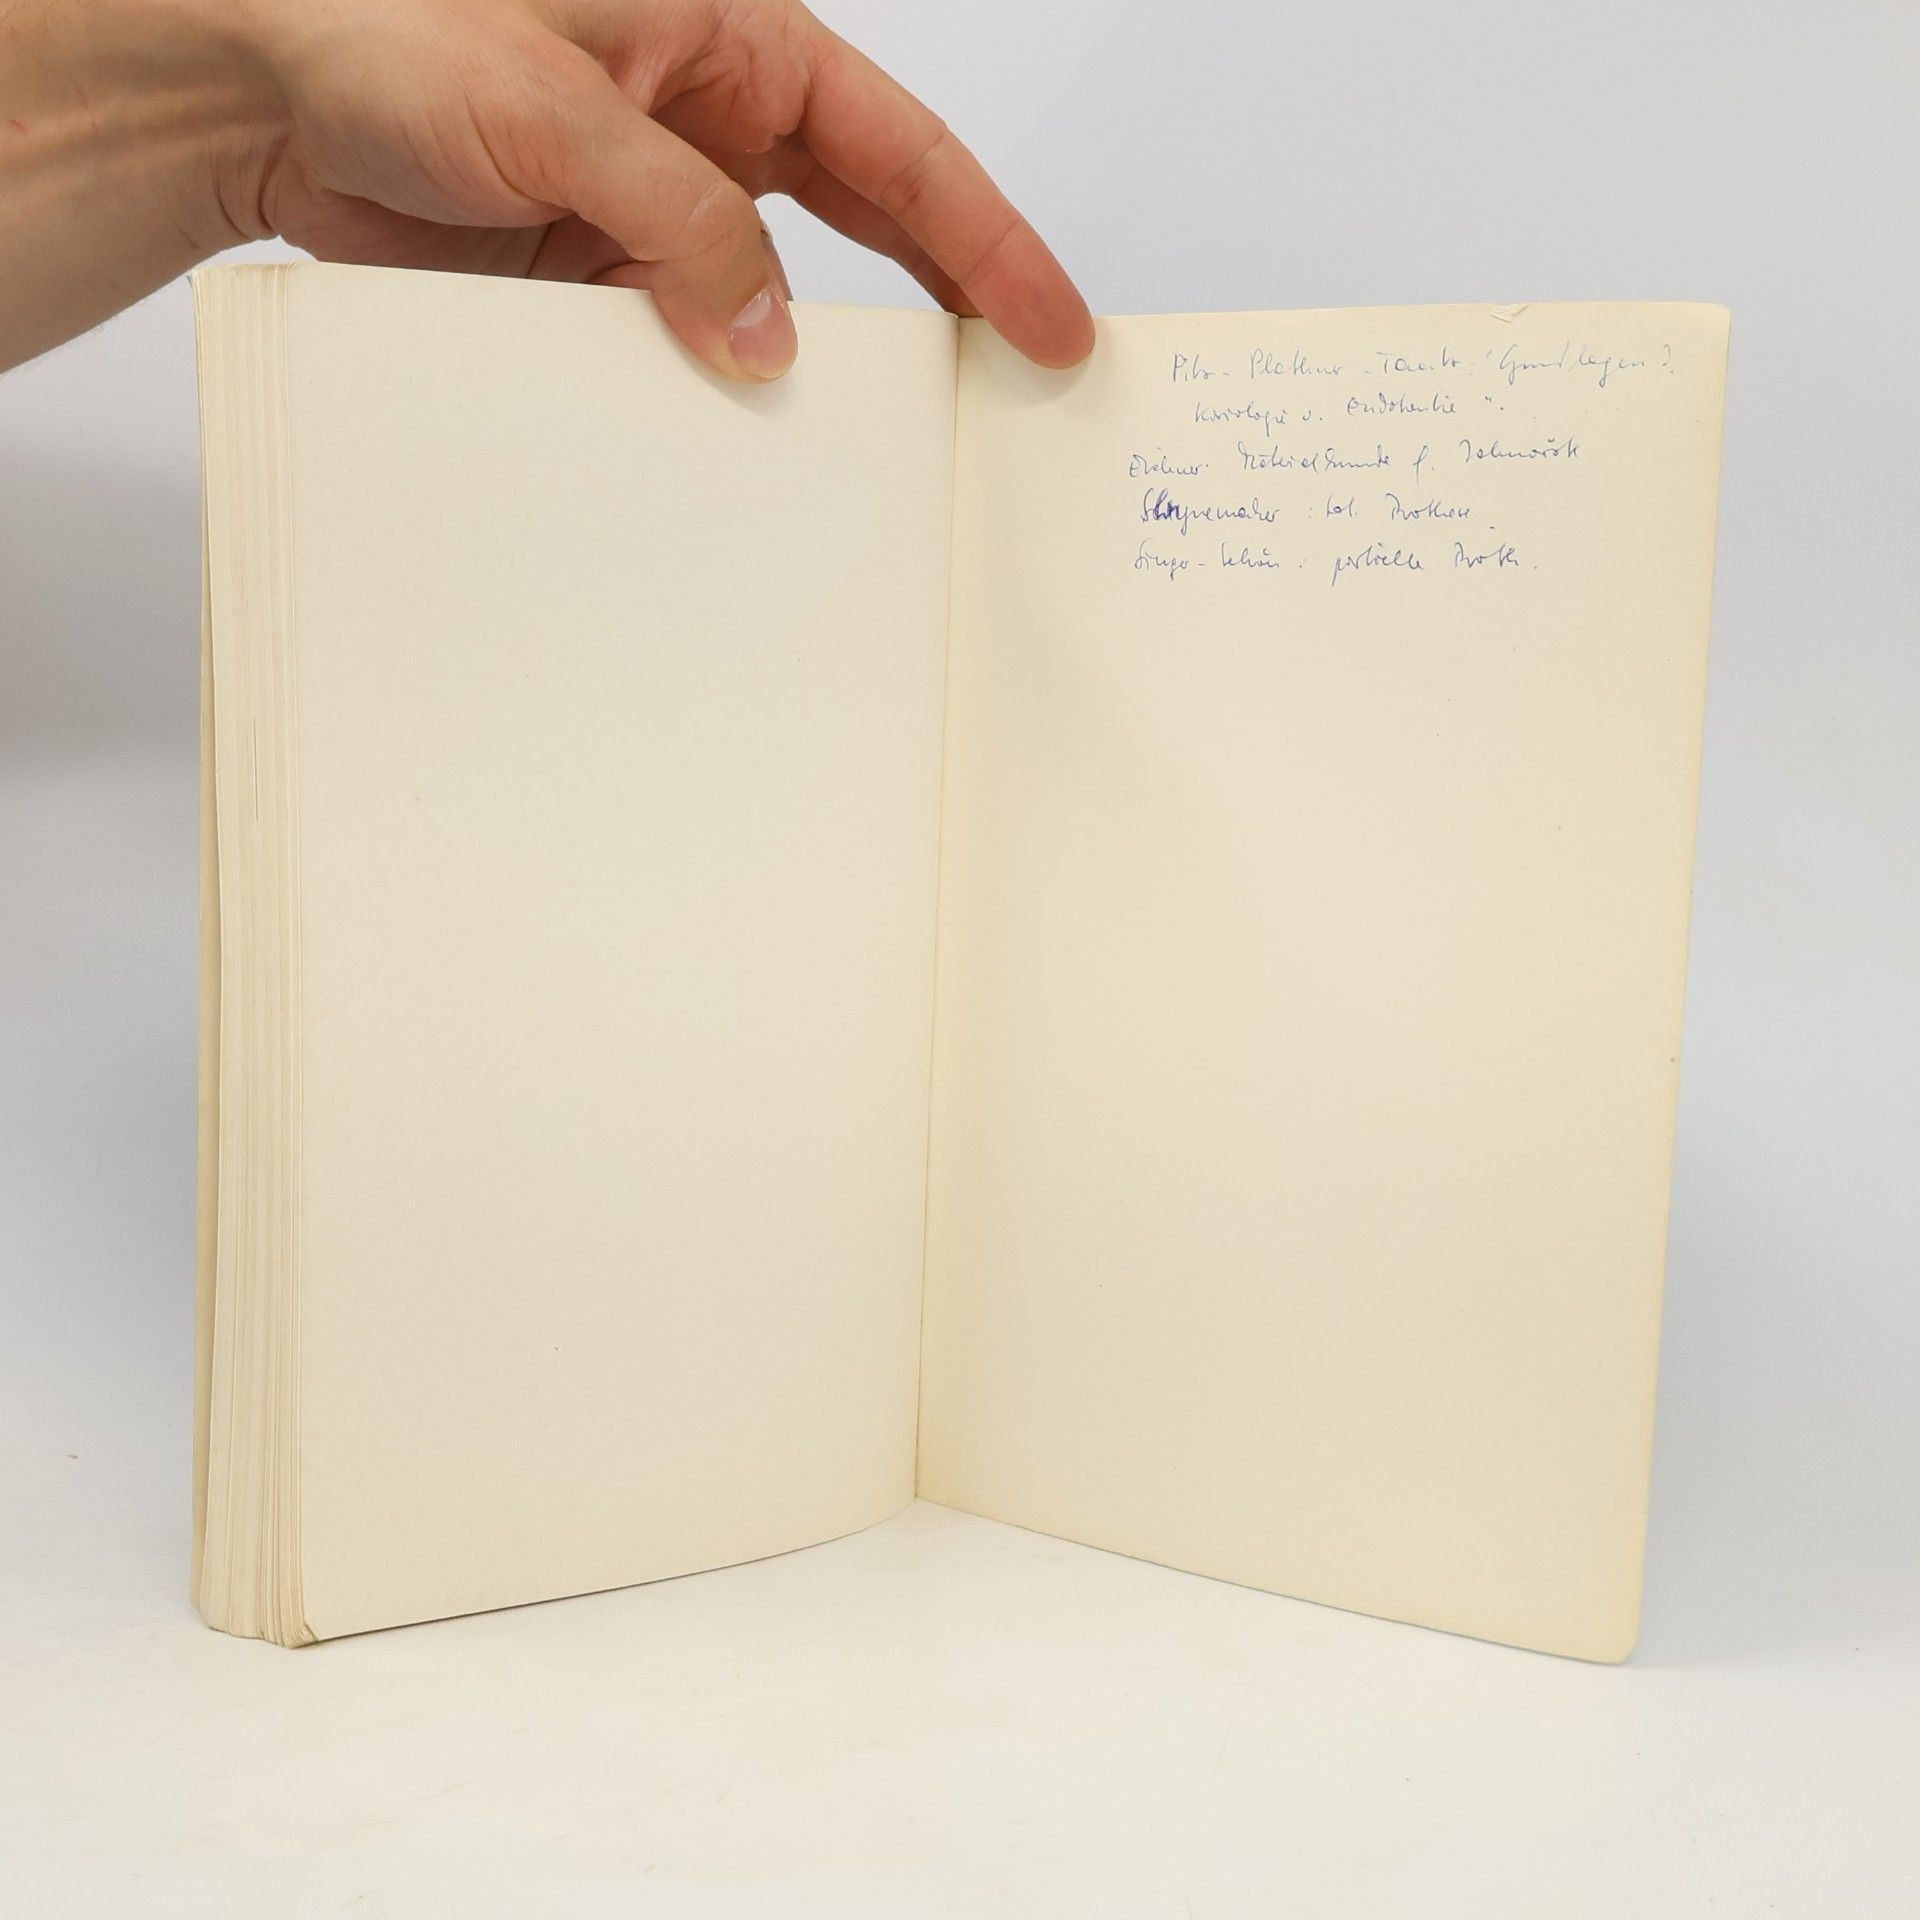 Pilz - Plathner - Taatz: "Grundlagen d.
Kariologie u. Endodontie".
Eichner: Materialkunde f. Zahnärzte
Schynemaker: tot. Prothese.
Singer - Schön: partielle Proth.